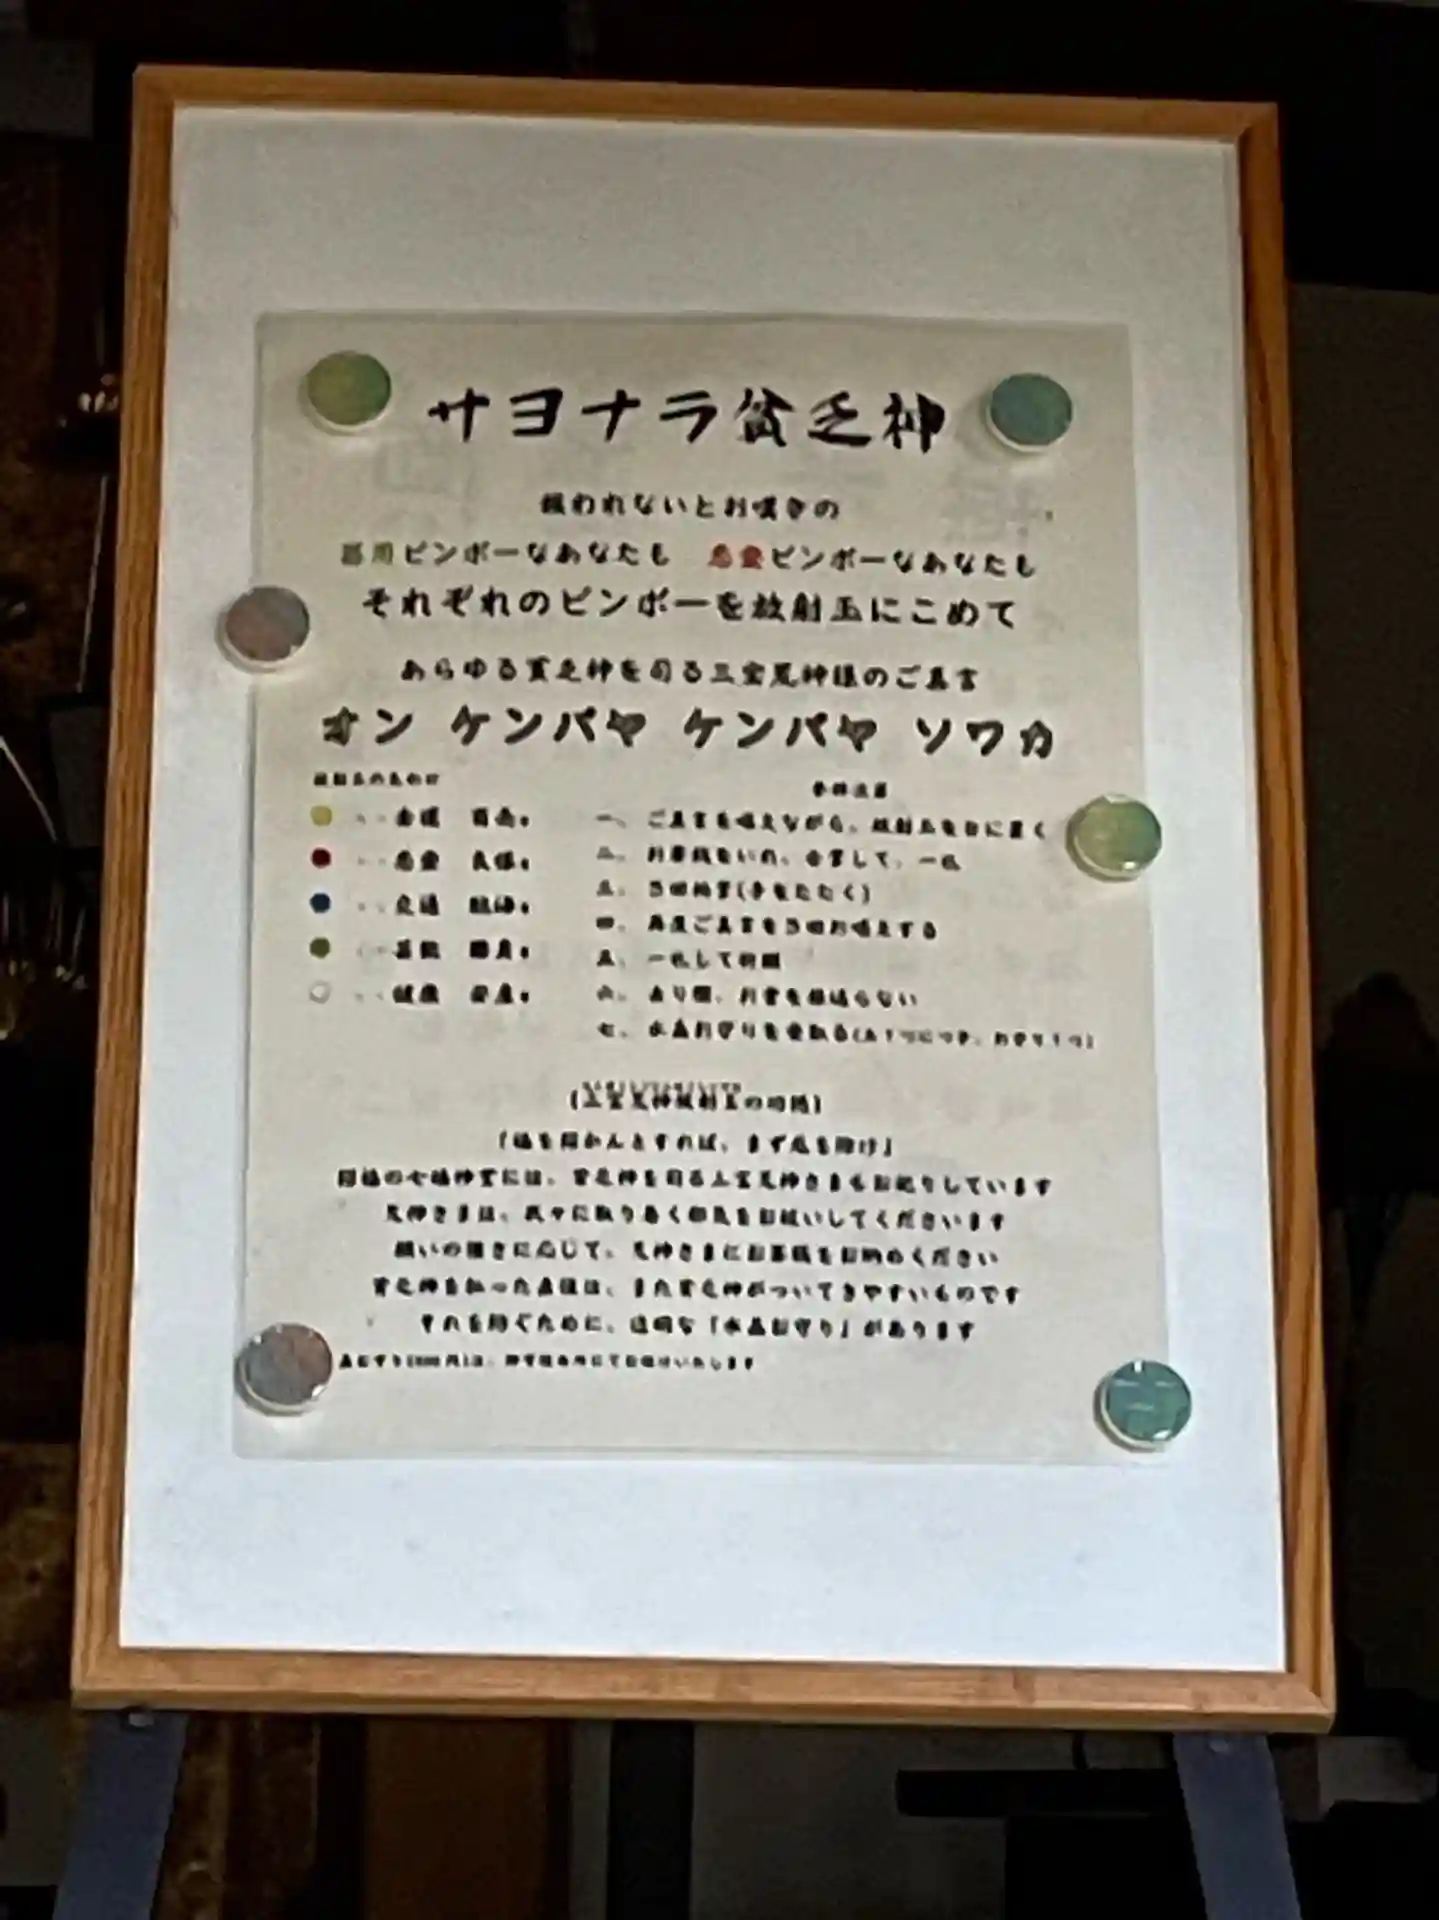 サヨナラ貧乏神
報われないとお嘆きの
器用ビンボーなあなたも 恋愛ビンボーなあなたも
それぞれのビンボーを放射玉にこめて
あらゆる貧乏神を司る三宝荒神様のご真言
オン ケンバヤ ケンバヤ ソワカ
金運
恋愛 良縁
交通
芸能
健康 安産
参拝法
一、ご真言を唱えながら、放射玉を台に置く
二、お賽銭をいれ、合掌して、一礼
三、3回拍掌(手をたたく)
四、再度ご真言を3回お唱えする
五、一礼して祈願
六、あり
七、水晶お守りを受取る(玉1つにつき、お守り1つ)
(三宝荒神放射玉の
「福を招かんとすれば、まず厄を除け」
招福の七福神堂には、貧乏神を司る三宝荒神さまもお祀りしています
荒神さまは、我々に取り巻く邪気をお祓いしてくださいます
願いの強さに応じて、荒神さまにお賽銭をお納めください
貧乏神を払った直後は、また貧乏神がついてきやすいものです
それを防ぐために、透明な「水晶お守り」があります